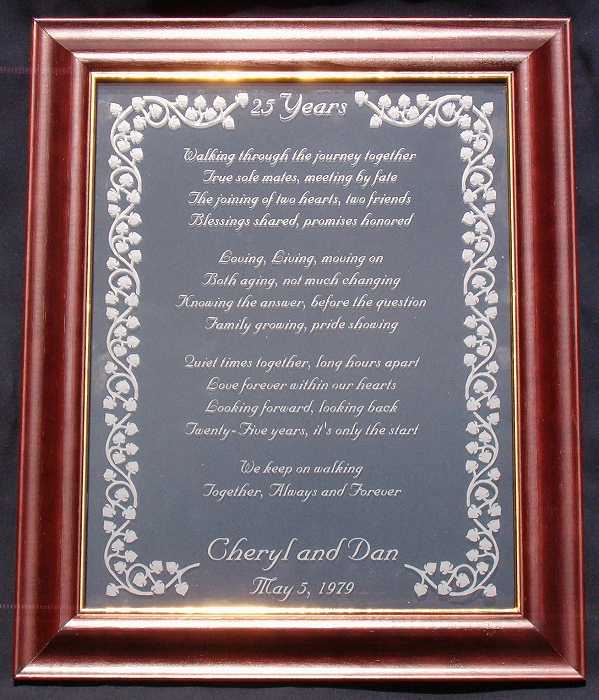 25 Years
Walking through the journey together
True sole mates, meeting by fate
The joining of two hearts, two friends
Blessings shared, promises honored
Loving, Living, moving on
Both aging, not much changing
Knowing the answer, before the question
Family growing, pride showing
Quiet times together, long hours apart
Love forever within our hearts
Looking forward, looking back
Twenty-Five years, it's only the start
We keep on walking
Together, Always and Forever
Cheryl and Dan
May 5, 1979